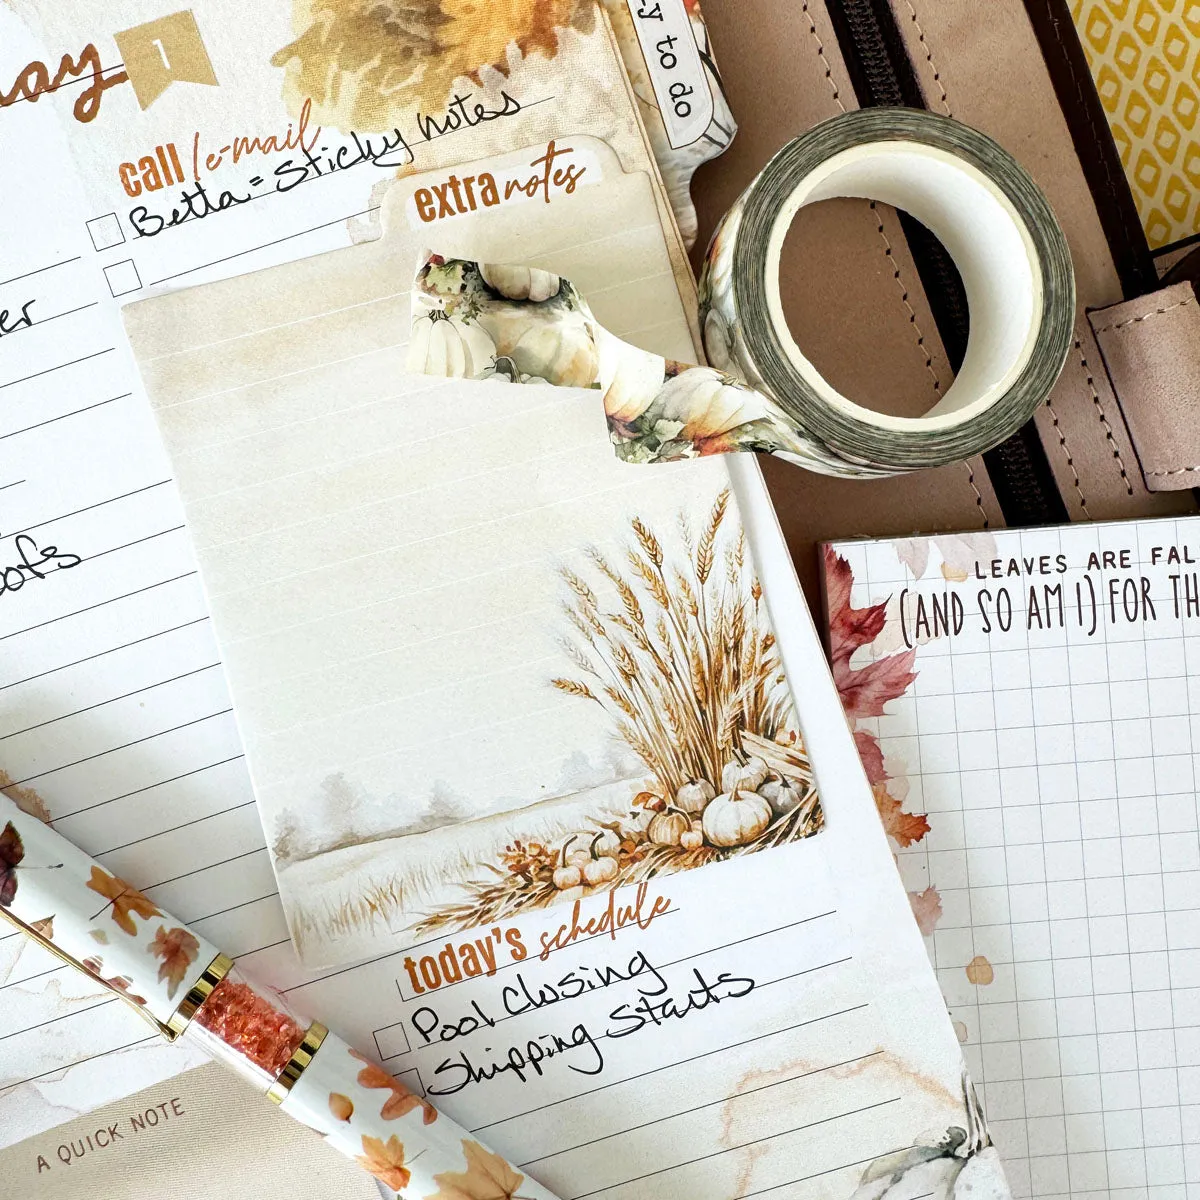 ay
1
y to do
call/e-mail
Betta = Sticky notes
extra notes
er
oofs
LEAVES ARE FAL
(AND SO AM I) FOR TH
today's schedule
Pool Closing
Shipping Starts
A QUICK NOTE